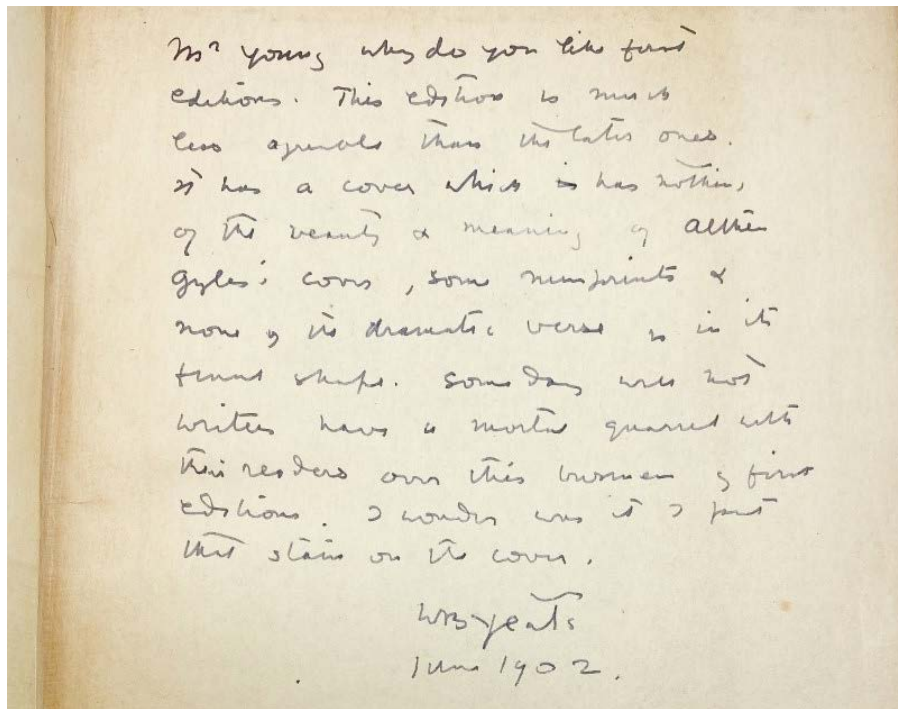 Mr Young why do you like first
editions. This edition is much
less agreeable than the later ones.
It has a cover which is has nothing
of the beauty & meaning of Althea
Gyles' cover, some misprints &
none of its dramatic verse is in its
final shape. Some day will not
writers have a mortal quarrel with
their readers over this business of first
editions. I wonder was it I put
that stain on the cover.
WB Yeats
June 1902.